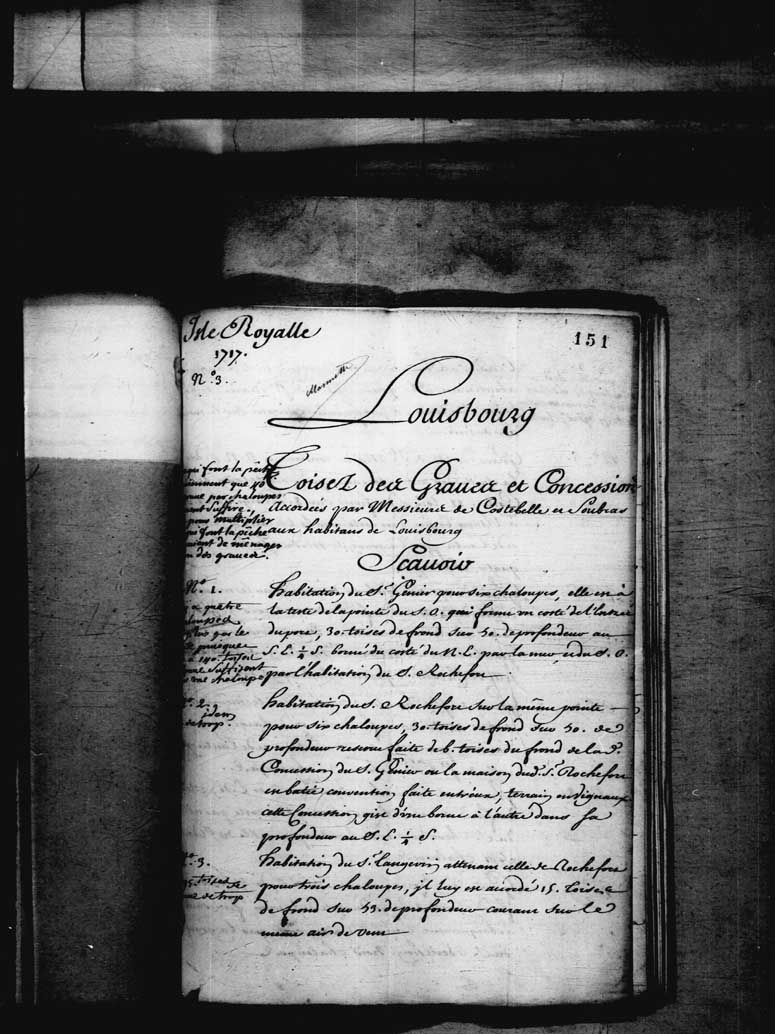 Isle Royalle
1717.
N.º 3.
151
Louisbourg
Toisez des Graues et Concession
Accordées par Messieurs de Costebelle et Soubras
aux habitans de Louisbourg
Scauoir
qui font la pêche
que 40
par chaloupes
suffire.,
pour multiplier
qui font la pêche
de ménager
des graues.
N.º 1.
quatre
plus que le
puisque
toises
suffisent
une chaloupe
habitation du S.r Genier pour six chaloupes, elle est à
la teste de la pointe du S.O. qui forme un costé de l'Entrée
du port, 30. toises de frond sur 50. de profondeur au
S.E. 1/4 S. borné du costé du N.E. par la mer, et du S.O.
par l'habitation du S. Rochefort.
2.
idem
de trop.
habitation du S. Rochefort sur la même pointe
pour six chaloupes, 30. toises de frond sur 50. de
profondeur reserue faite de 6. toises du frond de la d.e
Concession du S. Genier ou la maison dud. S.r Rochefort
est batie convention faite entr'eux, terrain en vignaux
cette Concession gist d'une borne à l'autre dans sa
profondeur au S.E. 1/4 S.
3.
toises
de trop
habitation du S.r Langevin attenant celle de Rochefort
pour trois chaloupes, il luy est accordé 15. toises
de frond sur 55. de profondeur courant sur le
même air de vent